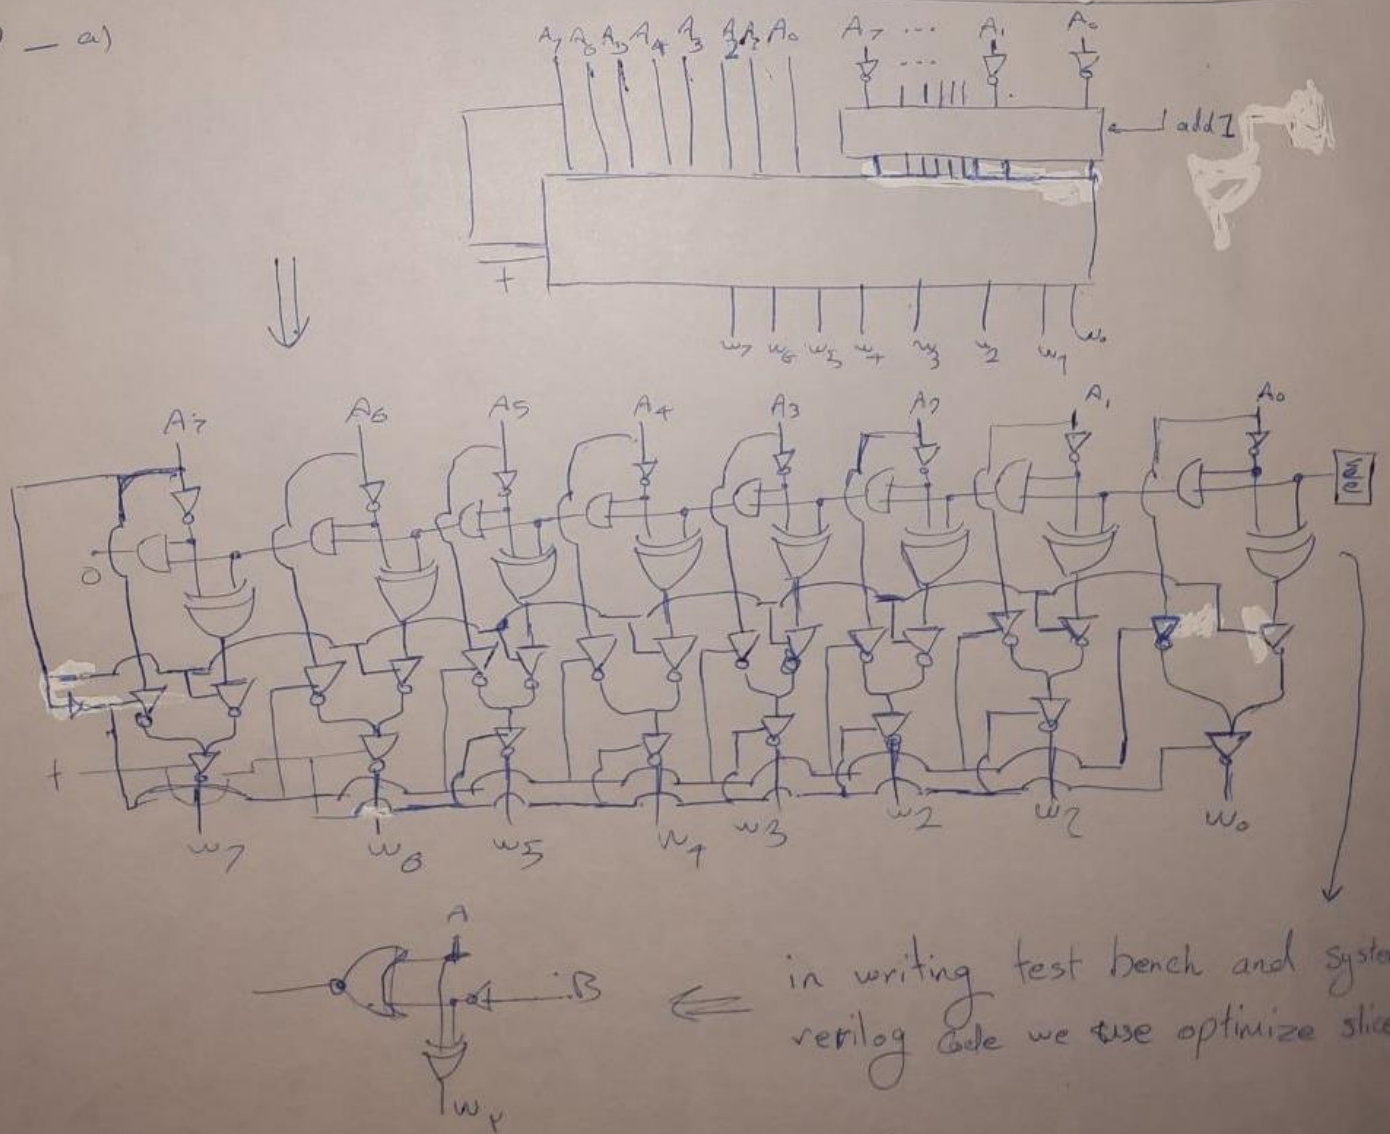 _ a)
A7 A6 A5 A4 A3 A2 A1 A0 A7 ... A1 A0
...
add 1
+
w7 w6 w5 w4 w3 w2 w1 w0
A7 A6 A5 A4 A3 A2 A1 A0
0
+
w7 w6 w5 w4 w3 w2 w2 w0
A
B
in writing test bench and syste
verilog code we use optimize slice